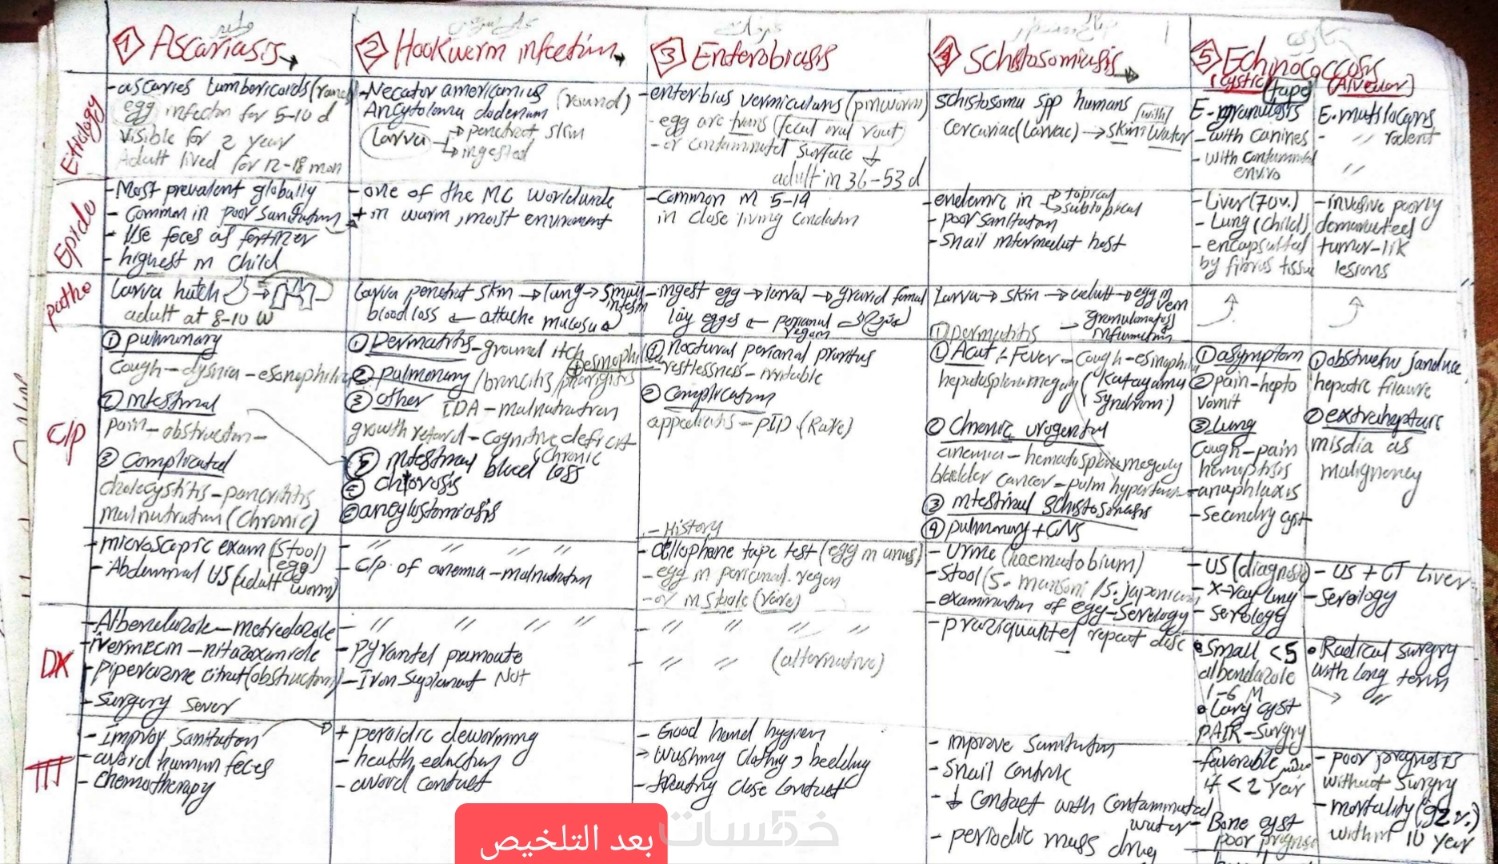 1 Ascariasis
2 Hookworm infection
3 Enterobiasis
4 Schistosomiasis
5 Echinococcosis
(cystic) (tape) (Alveolar)
Etiology
- ascaries lumbericoids (round)
egg infection for 5-10 d
visible for 2 year
Adult lived for 12-18 mon
- Necator americanius
Ancylotoma duodenium (round)
Larva → penetrat skin
→ ingested
- enterbius vermicularis (pinworm)
- egg are trans (fecal oral rout)
- or contaminated surface ↓
adult in 36-53 d
schistosoma spp humans
cercariae (larvae) → skin with water
E. granulosis
- with canines
- with contaminated
enviro
E. multilocaris
- rodent
〃
Epide
- Most prevalent globally
- Common in poor sanitation
- Use feces as fertilizer
- highest in child
- one of the MC worldwide
+ in warm, moist environment
- Common in 5-14
in close living condation
endemic in → topical
→ subtobical
- poor sanitation
- snail intermediat host
- Liver (70%)
- Lung (child)
- encapsulted
by fibrus tissu
- invasive poorly
demaructed
tumer-lik
lesions
patho
Larva hutch → 
adult at 8-10 W
Larva penetrat skin → lung → small intestin
blood loss ← attache mucosa
- ingest egg → larval → gravid femal
lay egges ← perianal regen
Larva → skin → adult → egg in vein
→ granulomatus inflammation
C/P
① pulmonary
cough - dysinia - esonophilia
② intestinal
pain - obstruction -
③ Complicated
cholecystitis - pancrititis
malnutration (chronic)
① Dermatitis - ground itch
② pulmonary / broncitis / pharigitis + eosinophilia
③ other IDA - malnutration
growth retard - cognitive deficit
chronic
⑤ intestinal blood loss
chlorosis
ancylostomiasis
① noctural perianal pruritus
- restlessness - irritable
② complication
appedicits - PID (Rare)
① Dermatitis
① Acut :- Fever - cough - esinophilia
hepatosplenomegaly (Katayama Syndrom)
② Chronic urogenital
anemia - hematosplenomegaly
bladder cancer - pulm hypertension
③ intestinal schistosomiasis
④ pulmonary + CNS
① asymptom
② pain - hepto
vomit
③ Lung
cough - pain
hemoptisis
- anaphlaxis
- Secondry cyst
① obstructiv janduce
hepatic filaure
② extrahepatic
misdia as
malignency
- microscopic exam (stool) egg
- Abdominal US (adult worm)
- 〃 〃 〃
- C/p of anemia - malnutration
- History
- cellophane tape test (egg in anus)
- egg in perianal regen
- or in stole (rare)
- Urine (haematobium)
- Stool (S. mansoni / S. japonicum)
- examination of egg - Serology
- US (diagnosis)
- X-ray lung
- serology
- US + CT Liver
- Serology
DX
- Albendazole - metredazole
- ivermecin - nitazoxanide
- piperazine citrat (obstruction)
- surgery sever
- 〃 〃 〃 〃
- pyrantel pamoate
- Iron suplament Not
〃 〃 〃 〃
- 〃 〃 (alternative)
- praziquantel repeat dose
• Small <5
albendazole
1-6 M
• Larg cyst
PAIR - surgry
• Radical surgry
with long term
〃
TTT
- Improv Sanitation
- avoid human feces
- chemotherapy
+ peroidic deworming
- health eduction
- avoid contact
- Good hand hygien
- Wushing clathing, bedding
- treating close contact
- improve sanitation
- Snail controle
- ↓ contact with contaminated
water
- periodic mass drug
- favorable
if <2 year
- Bone cyst
poor prognos
- poor prognosis
without surgry
- mortality (92%)
within 10 year
بعد التلخيص
خمسات